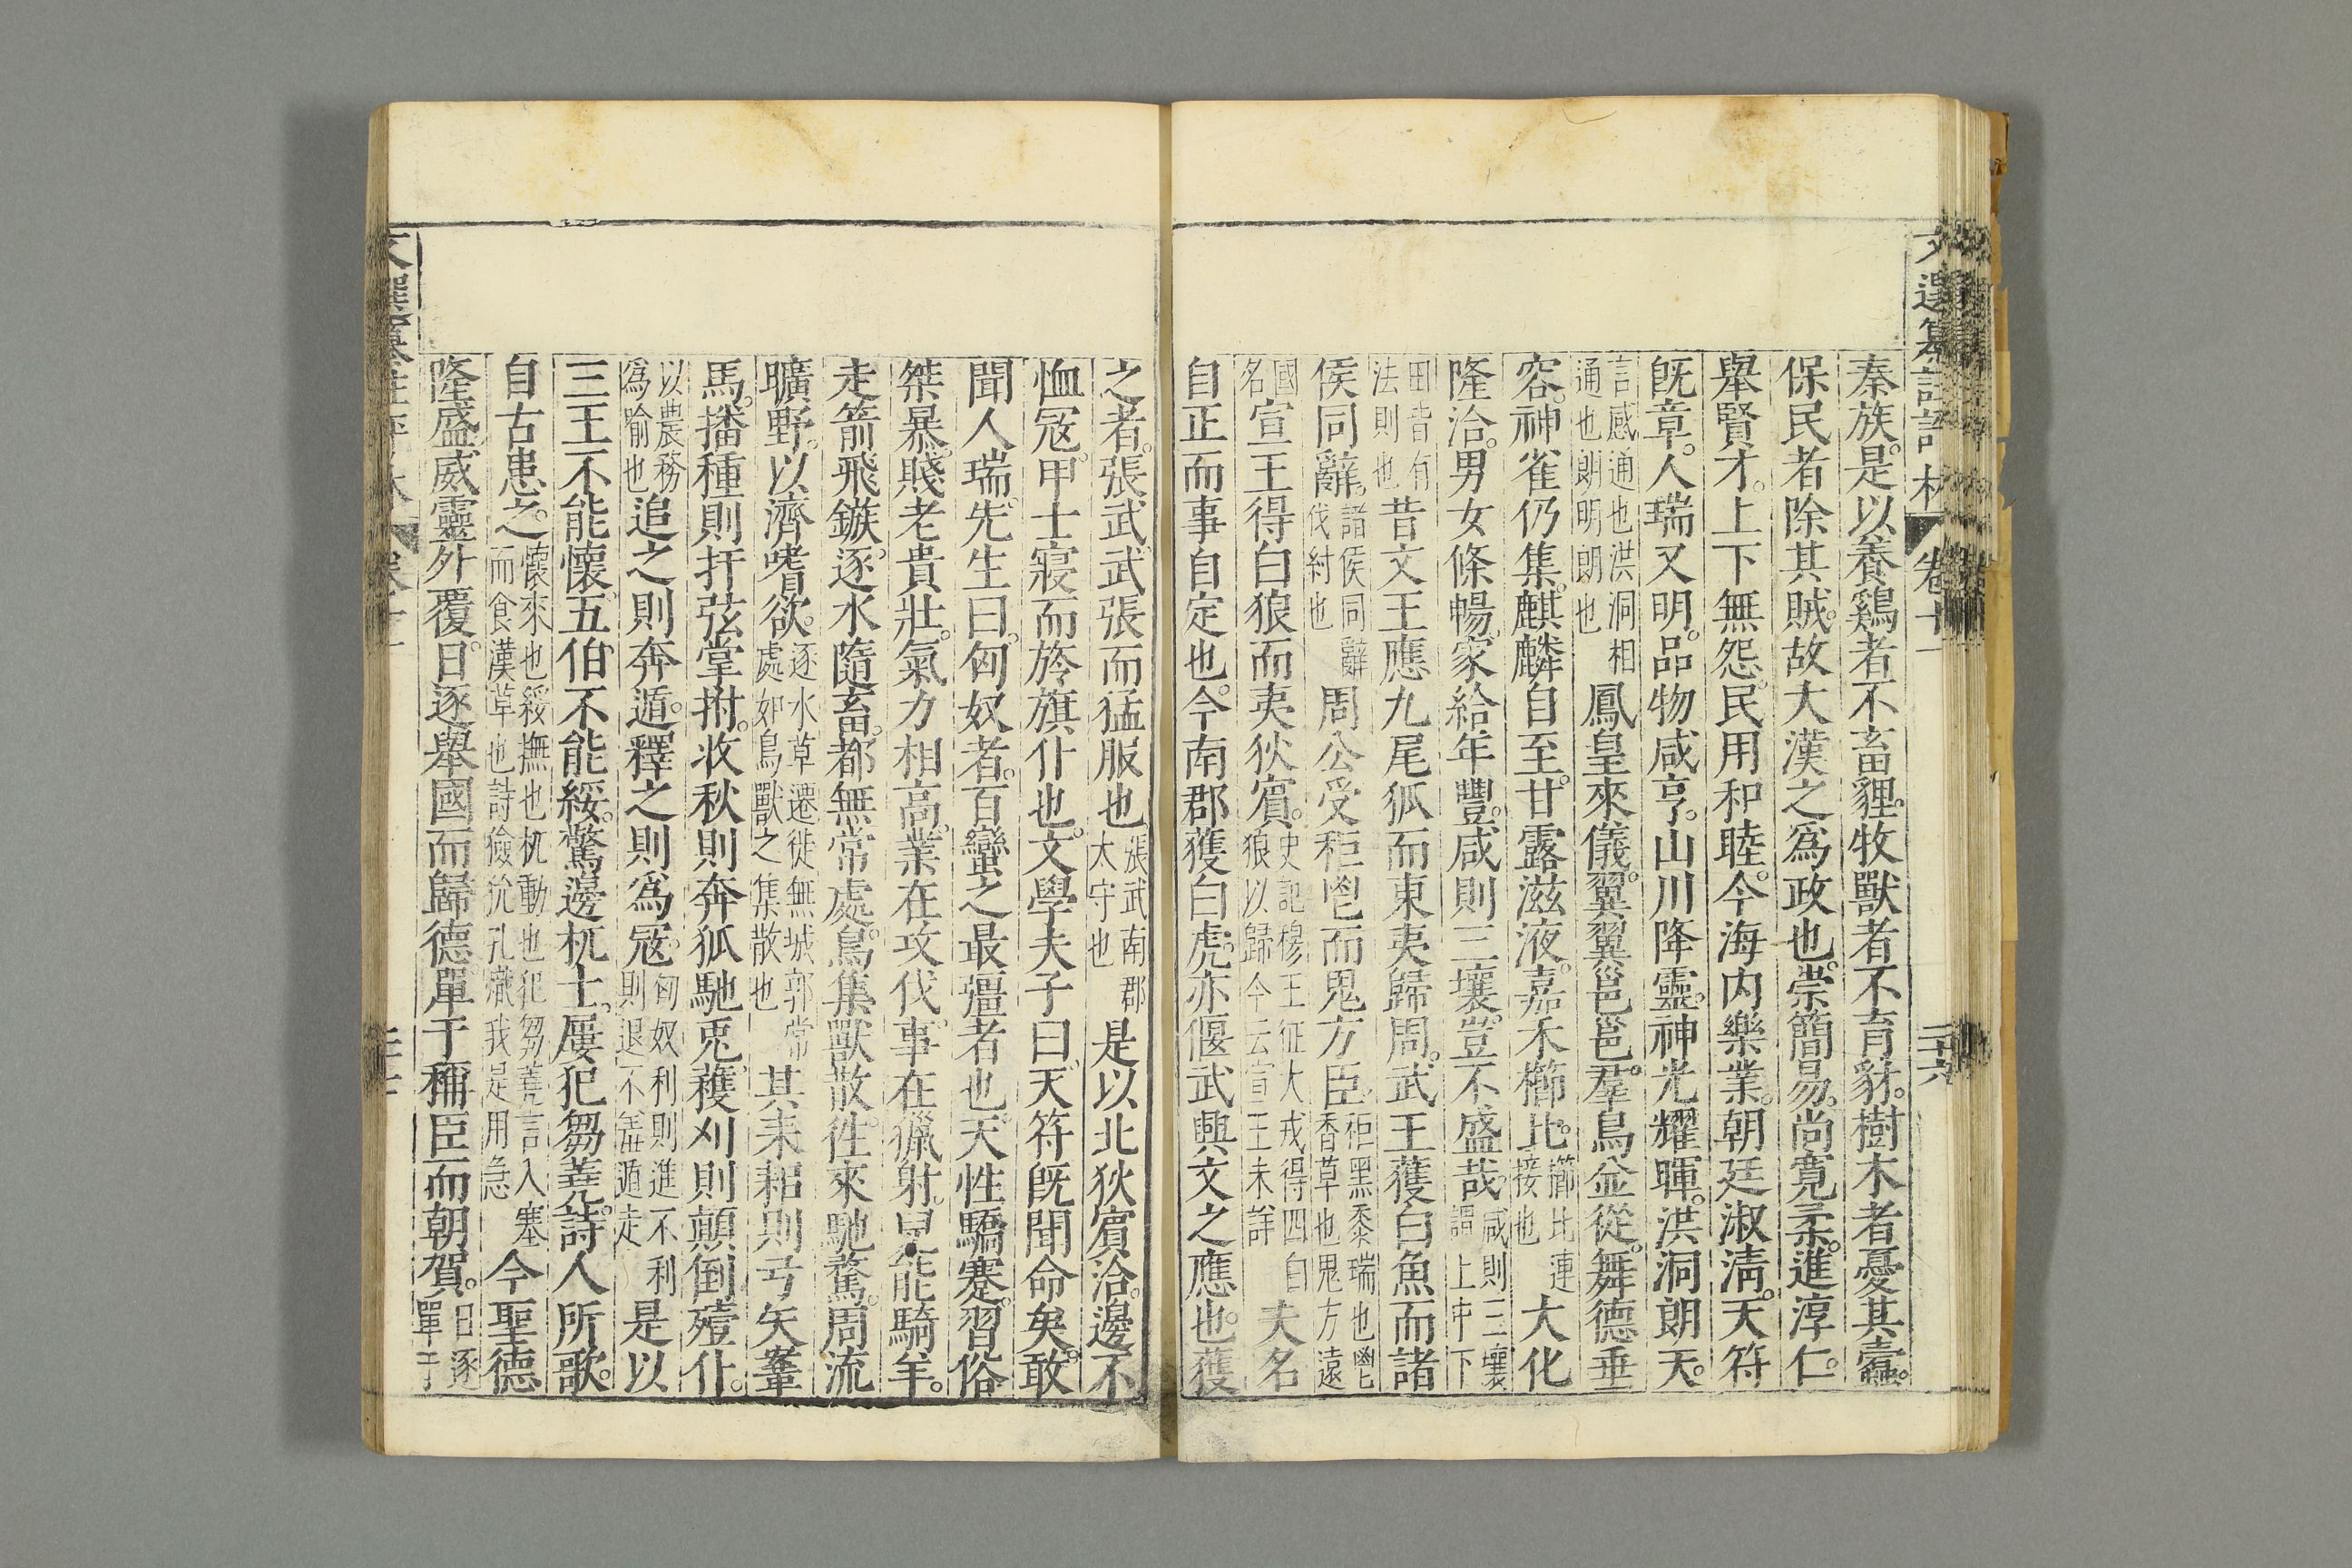 秦族。是以養鷄者不畜貍。牧獸者不育豺。樹木者憂其蠹。
保民者除其賊。故大漢之爲政也。崇簡易。尚寬柔。進淳仁。
舉賢才。上下無怨。民用和睦。今海内樂業。朝廷淑清。天符
旣章。人瑞又明。品物咸亨。山川降靈。神光耀暉。洪洞朗天。
言感通也洪洞相通也朗明朗也 鳳皇來儀。翼翼邕邕。羣鳥並從。舞德垂
容。神雀仍集。麒麟自至。甘露滋液。嘉禾櫛比。櫛比連接也 大化
隆洽。男女條暢。家給年豐。咸則三壤。豈不盛哉。咸則三壤謂上中下
田皆有法則也 昔文王應九尾狐而東夷歸周。武王獲白魚而諸
侯同辭。諸侯同辭伐紂也 周公受秬鬯而鬼方臣。秬黑黍瑞也鬯香草也鬼方遠
國名 宣王得白狼而夷狄賓。史記穆王征犬戎得四白狼以歸今云宣王未詳 夫名
自正而事自定也。今南郡獲白虎。亦偃武興文之應也。獲
之者。張武。武張而猛服也 張武南郡太守也 是以北狄賓洽。邊不
恤寇。甲士寢而旍旗仆也。文學夫子曰。天符旣聞命矣。敢
聞人瑞。先生曰。匈奴者。百蠻之最彊者也。天性驕蹇。習俗
桀暴。賤老貴壯。氣力相高。業在攻伐。事在獵射。兒能騎羊。
走箭飛鏃。逐水隨畜。都無常處。鳥集獸散。往來馳騖。周流
曠野。以濟嗜欲。逐水草遷徙無城郭常處如鳥獸之集散也 其耒耜則弓矢鞌
馬。播種則扞弦掌拊。收秋則奔狐馳兎。穫刈則顛倒殪仆。
以農務爲喻也 追之則奔遁。釋之則爲寇。匈奴利則進不利則退不羞遁走 是以
三王不能懷。五伯不能綏。驚邊杌士。屢犯芻蕘。詩人所歌。
自古患之。懷來也綏撫也杌動也犯芻蕘言入塞而食漢草也詩儉狁孔熾我是用急 今聖德
隆盛。威靈外覆。日逐舉國而歸德。單于稱臣而朝賀。日逐單于
卷十一
二十六